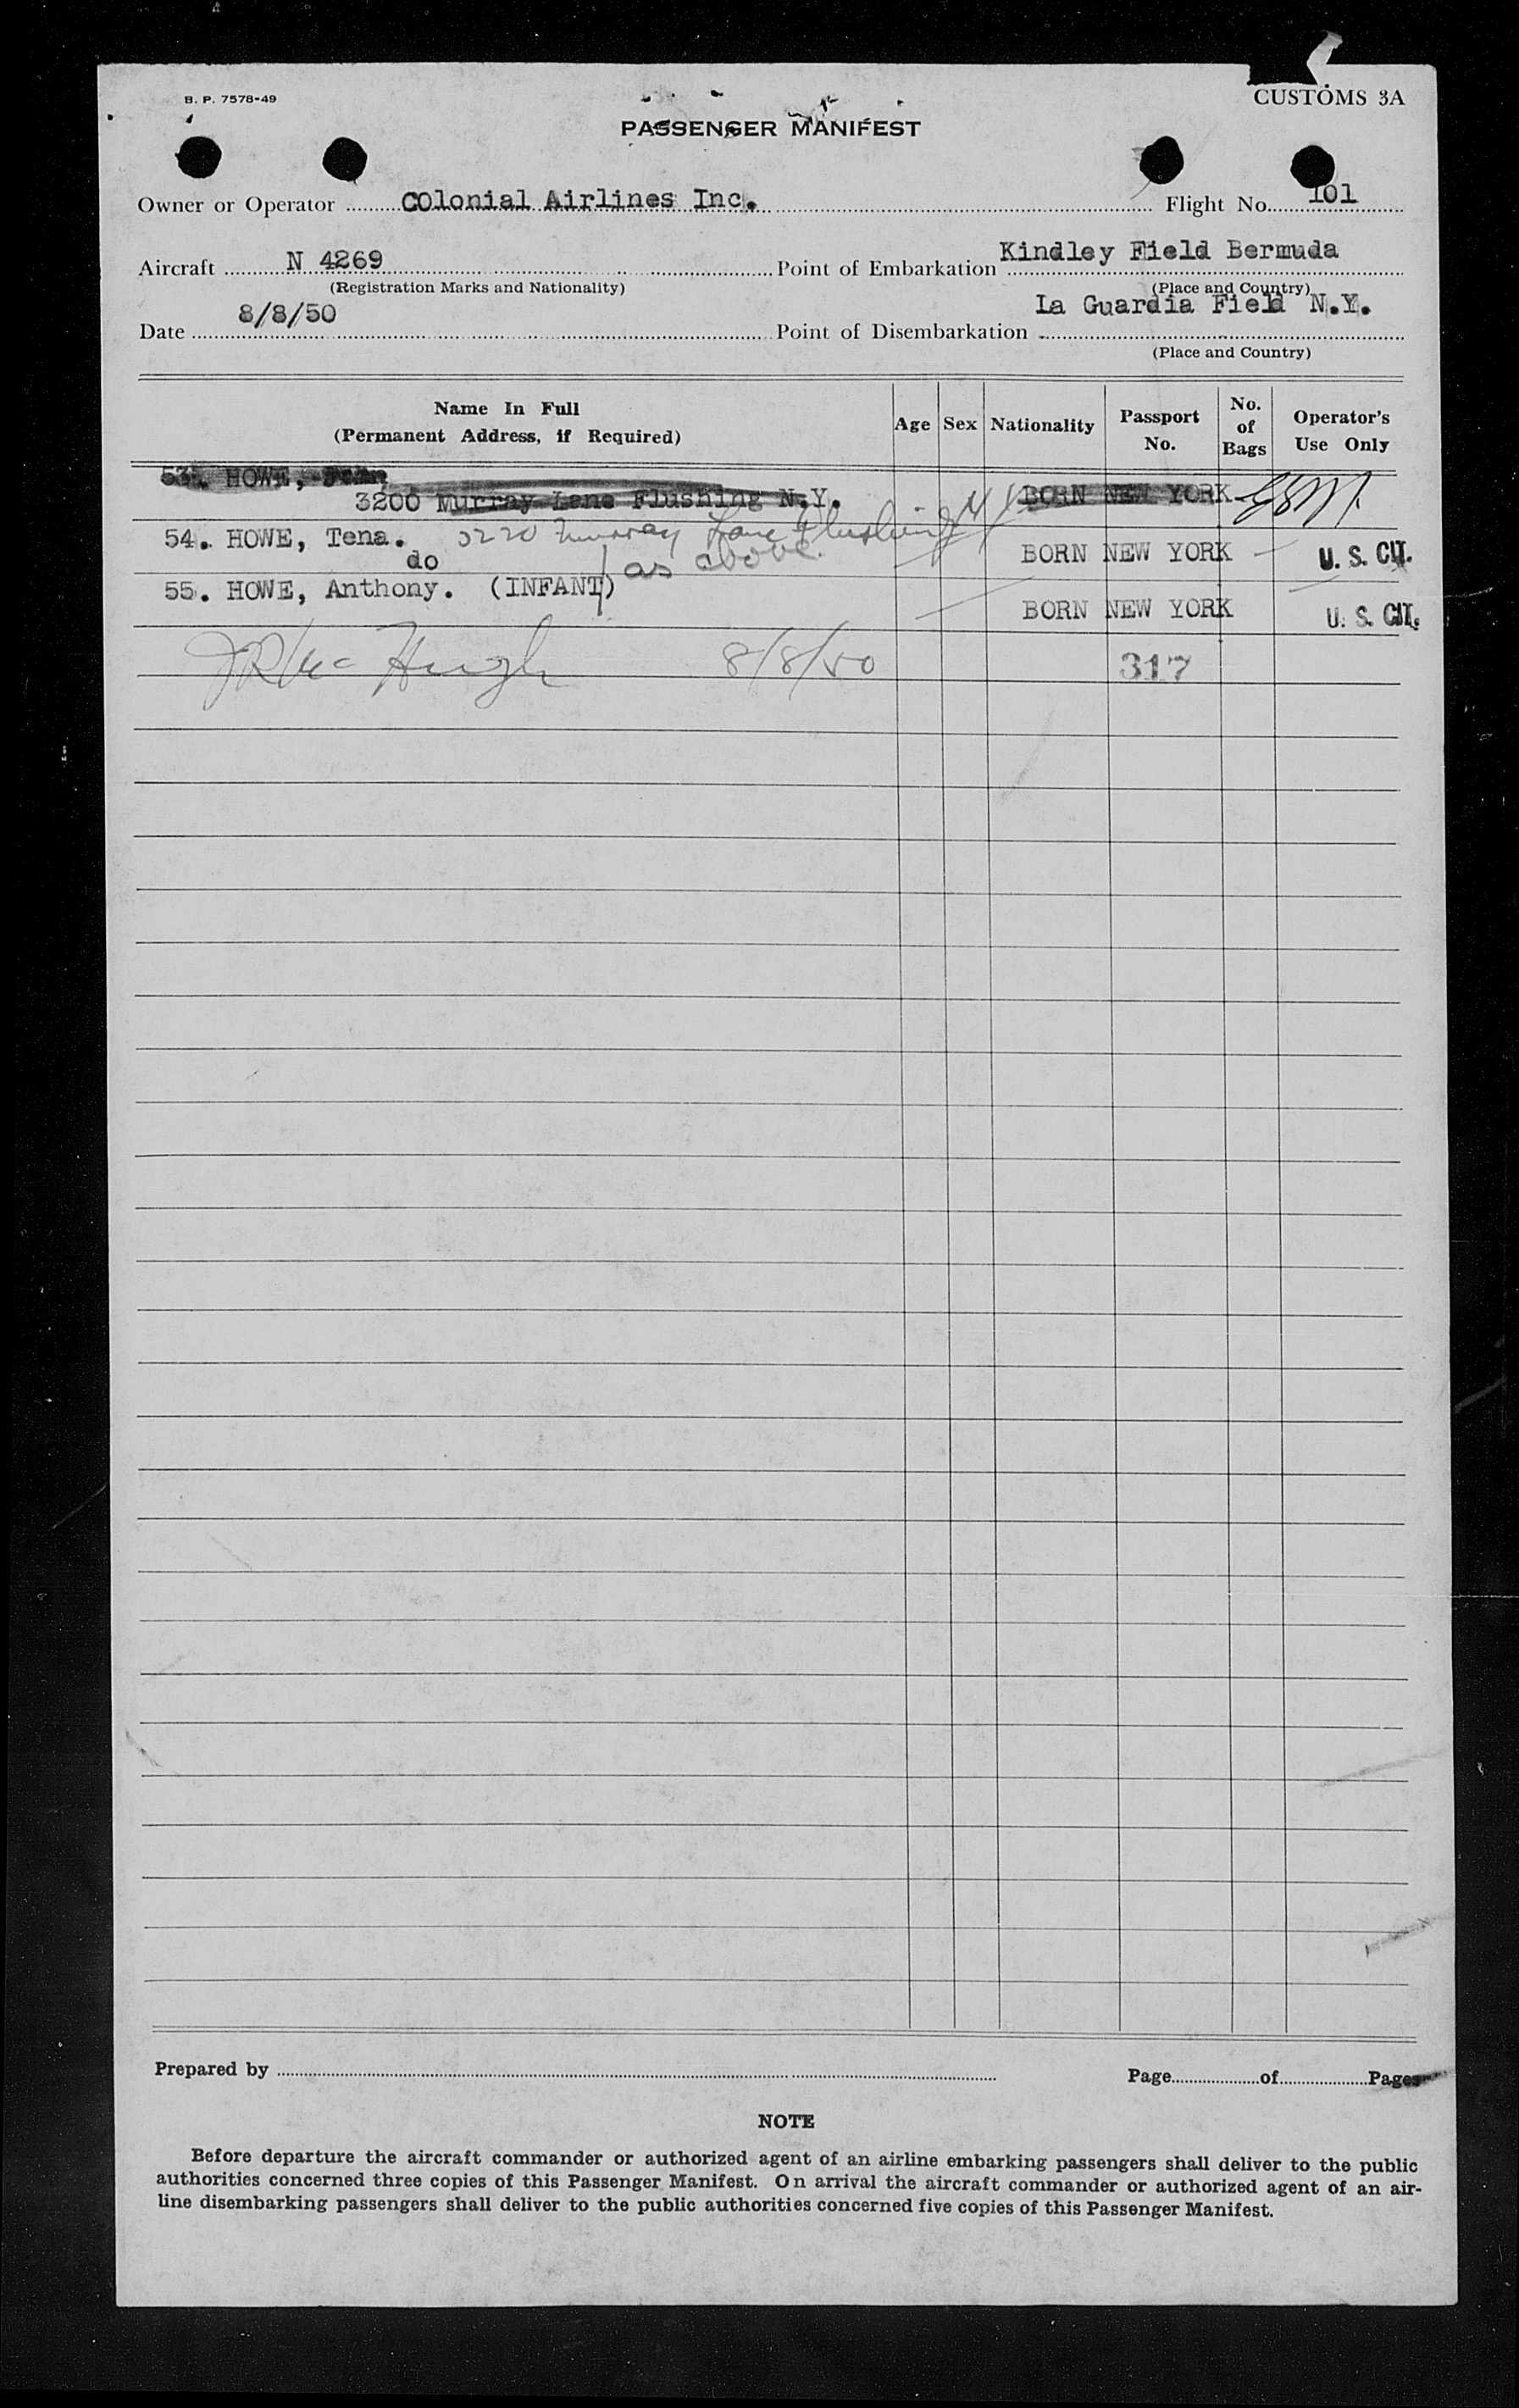 B. P. 7578-49
CUSTOMS 3A
PASSENGER MANIFEST
Owner or Operator COlonial Airlines Inc. Flight No. 101
Aircraft N 4269 Point of Embarkation Kindley Field Bermuda
(Registration Marks and Nationality) (Place and Country)
Date 8/8/50 Point of Disembarkation La Guardia Field N.Y.
(Place and Country)
Name In Full (Permanent Address, if Required) Age Sex Nationality Passport No. No. of Bags Operator's Use Only
53. HOWE,
3200 Murray Lane Flushing N.Y. BORN NEW YORK
54. HOWE, Tena. 3220 Murray Lane Flushing N Y
do BORN NEW YORK U. S. CIT.
as above.
55. HOWE, Anthony. (INFANT)
BORN NEW YORK U. S. CIT.
Mc Hugh 8/8/50 317
Prepared by Page of Pages
NOTE
Before departure the aircraft commander or authorized agent of an airline embarking passengers shall deliver to the public
authorities concerned three copies of this Passenger Manifest. On arrival the aircraft commander or authorized agent of an air-
line disembarking passengers shall deliver to the public authorities concerned five copies of this Passenger Manifest.